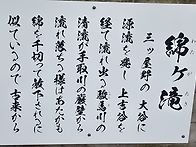 綿ヶ滝
三ッ屋野の大谷に
源流を発し上吉谷を
経て流れ出る駿馬川の
清流が手取川の巌壁から
流れ落ちる様はあたかも
綿を千切って放下されるに
似ているので古来から